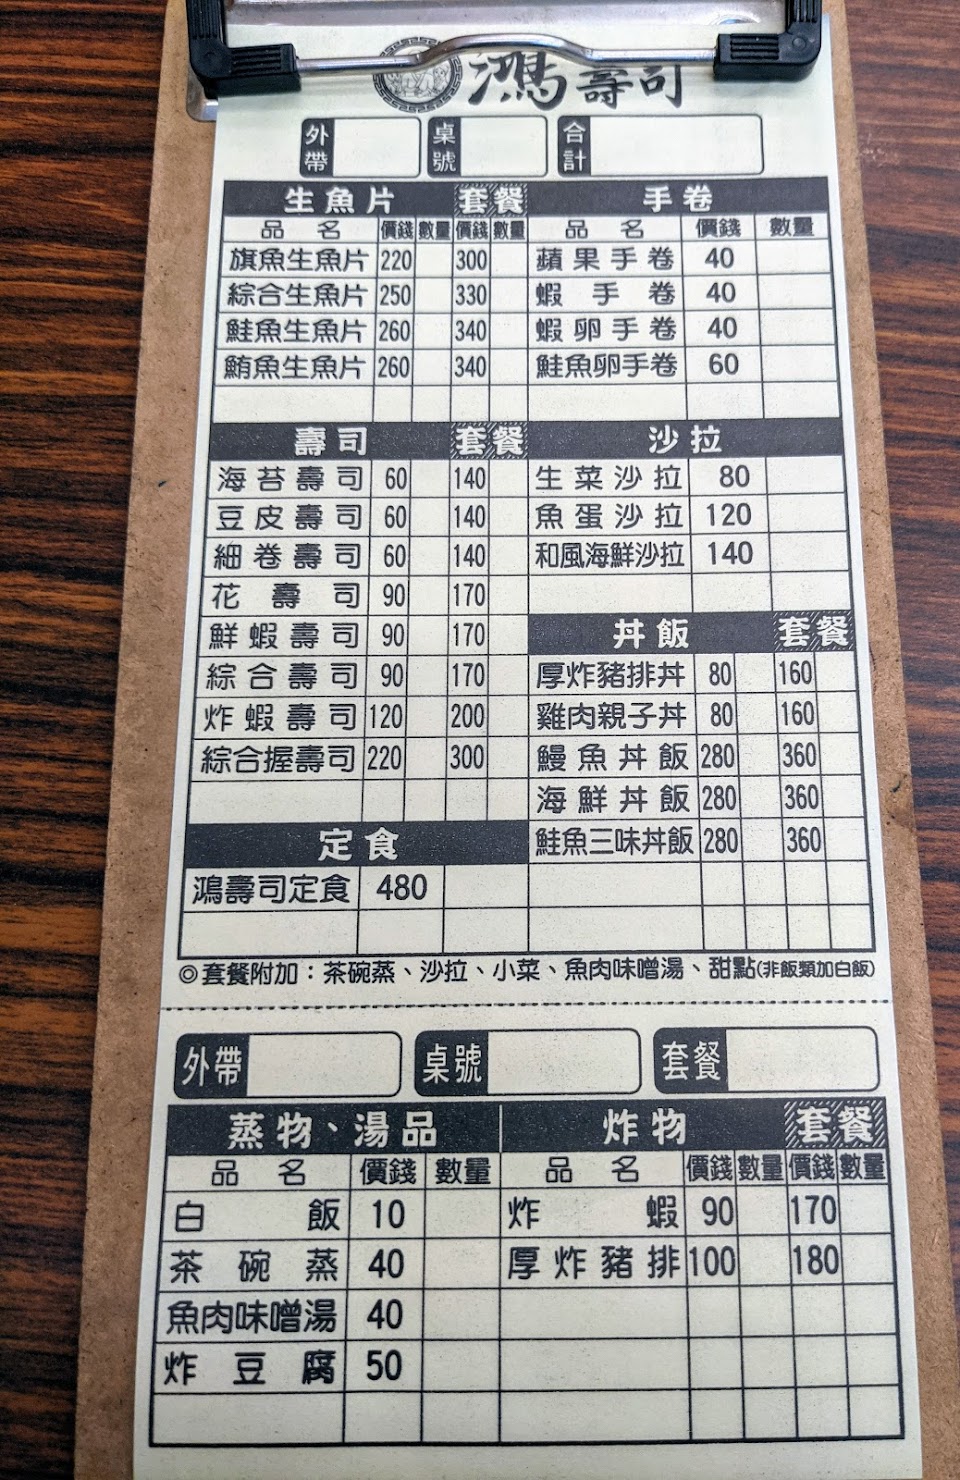 鴻壽司
外帶 桌號 合計
生魚片 套餐 手卷
品名 價錢 數量 價錢 數量 品名 價錢 數量
旗魚生魚片 220 300 蘋果手卷 40
綜合生魚片 250 330 蝦手卷 40
鮭魚生魚片 260 340 蝦卵手卷 40
鮪魚生魚片 260 340 鮭魚卵手卷 60
壽司 套餐 沙拉
海苔壽司 60 140 生菜沙拉 80
豆皮壽司 60 140 魚蛋沙拉 120
細卷壽司 60 140 和風海鮮沙拉 140
花壽司 90 170
鮮蝦壽司 90 170 丼飯 套餐
綜合壽司 90 170 厚炸豬排丼 80 160
炸蝦壽司 120 200 雞肉親子丼 80 160
綜合握壽司 220 300 鰻魚丼飯 280 360
海鮮丼飯 280 360
定食 鮭魚三味丼飯 280 360
鴻壽司定食 480
◎套餐附加：茶碗蒸、沙拉、小菜、魚肉味噌湯、甜點(非飯類加白飯)
外帶 桌號 套餐
蒸物、湯品 炸物 套餐
品名 價錢 數量 品名 價錢 數量 價錢 數量
白飯 10 炸蝦 90 170
茶碗蒸 40 厚炸豬排 100 180
魚肉味噌湯 40
炸豆腐 50